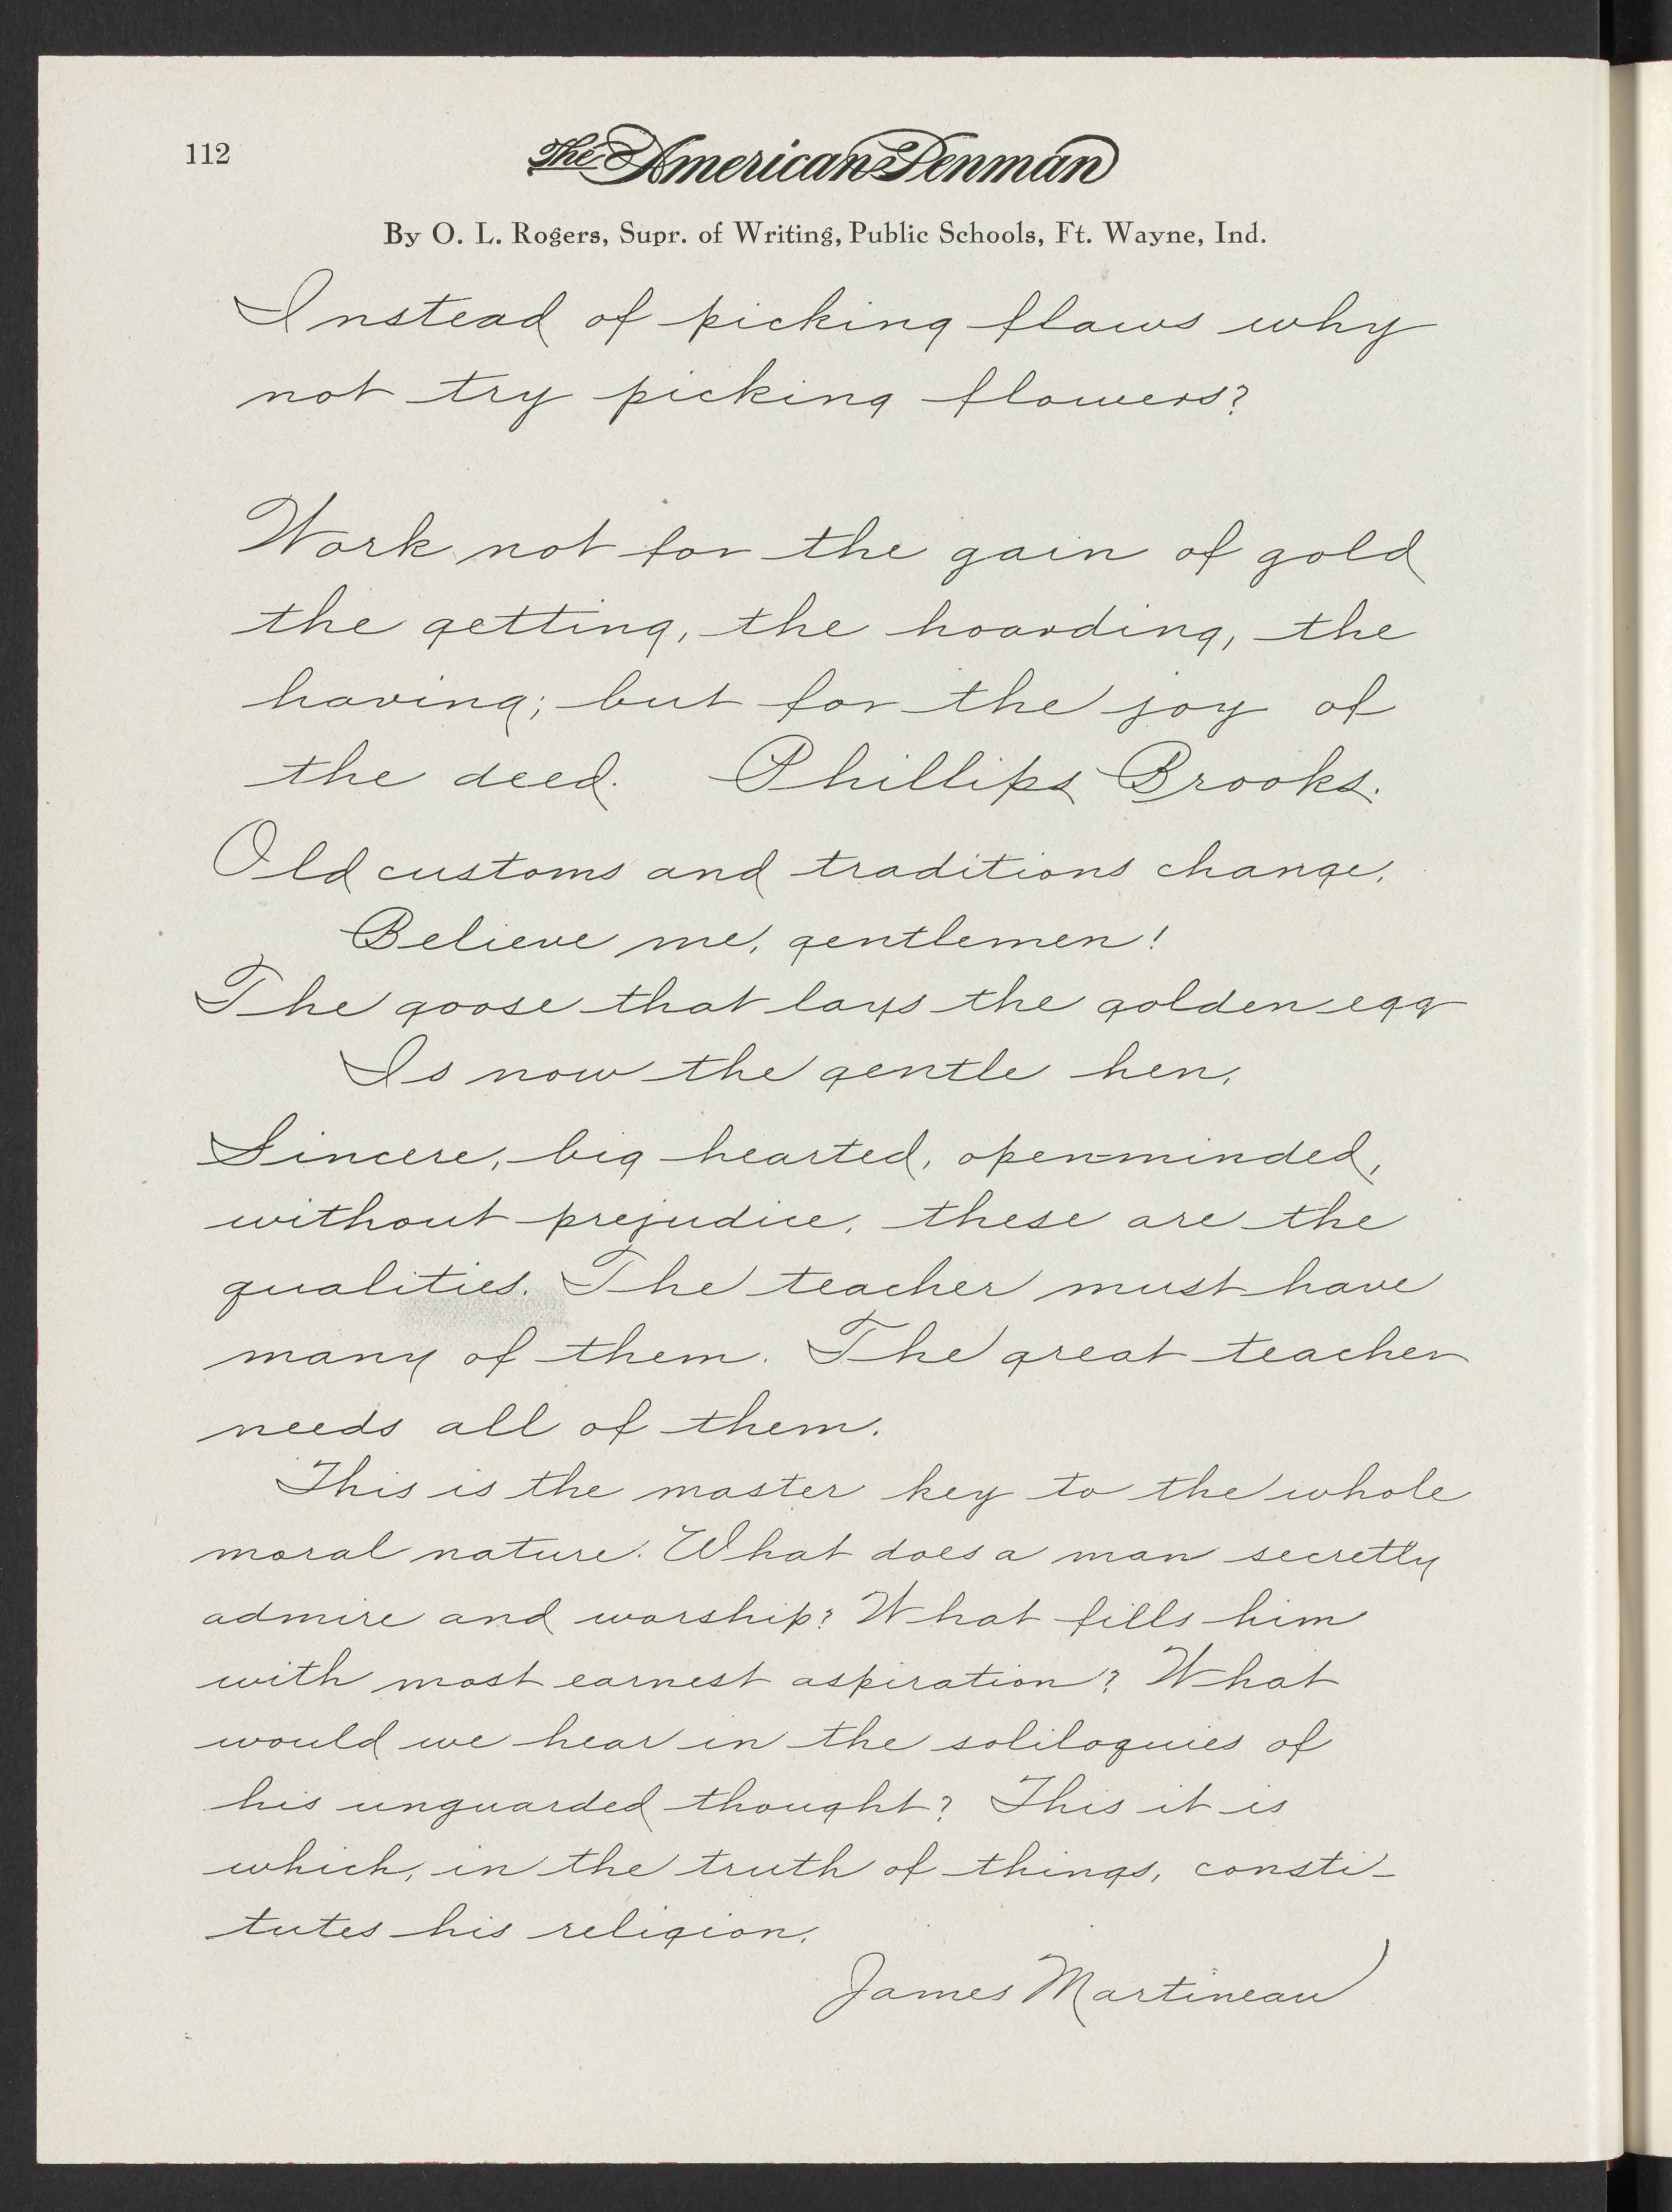 112
The American Penman
By O. L. Rogers, Supr. of Writing, Public Schools, Ft. Wayne, Ind.
Instead of picking flaws why
not try picking flowers?
Work not for the gain of gold
the getting, the hoarding, the
having; but for the joy of
the deed. Phillips Brooks.
Old customs and traditions change,
Believe me, gentlemen!
The goose that lays the golden egg
Is now the gentle hen.
Sincere, big hearted, open-minded,
without prejudice, these are the
qualities. The teacher must have
many of them. The great teacher
needs all of them.
This is the master key to the whole
moral nature. What does a man secretly
admire and worship? What fills him
with most earnest aspiration? What
would we hear in the soliloquies of
his unguarded thought? This it is
which, in the truth of things, consti-
tutes his religion.
James Martineau